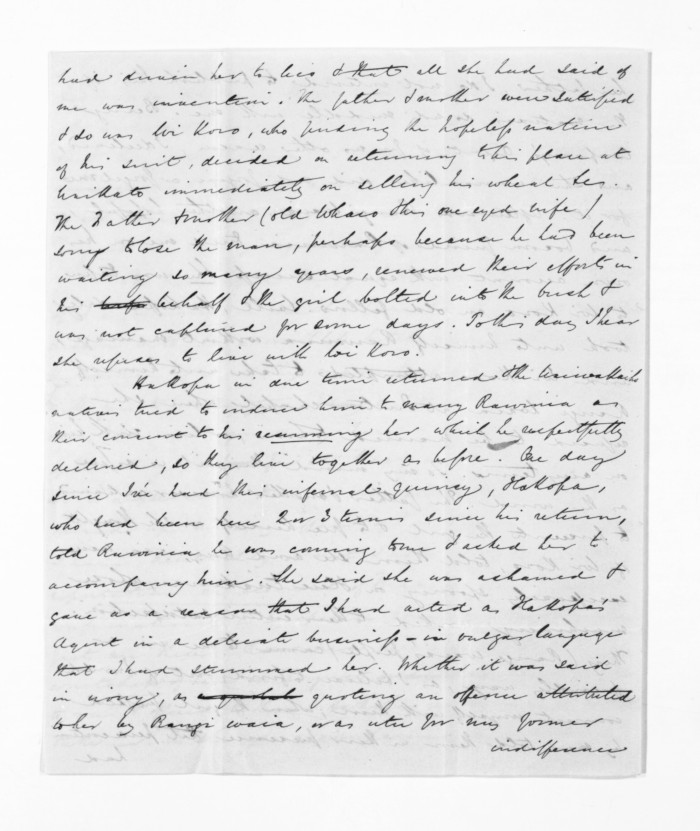 had driven her to lies & that all she had said of
me was invention. The father & mother were satisfied
& so was Wi Koro, who perusing the hopeless nature
of his suit, decided on returning to his place at
Waikato immediately on selling his wheat &c.
The Father & mother (old Whare & his one eyed wife)
sorry to lose the man, perhaps because he had been
waiting so many years, renewed their efforts in
his behalf & the girl bolted into the bush &
was not captured for some days. To this day I hear
she refuses to live with Wi Koro.
Hakopa in due time returned & the
natives tried to induce him to marry Rawinia as
their consent to his her which he respectfully
declined, so they live together as before. One day
since I've had this infernal quincy, Hakopa,
who had been here 2 or 3 times since his return,
told Rawinia he was coming to me & asked her to
accompany him. She said she was ashamed &
gave as a reason that I had acted as Hakopa's
Agent in a delicate business - in vulgar language
that I had her. Whether it was said
in irony, as quoting an offence attributed
to her by Rangi waia, or as utu for my former
indifference